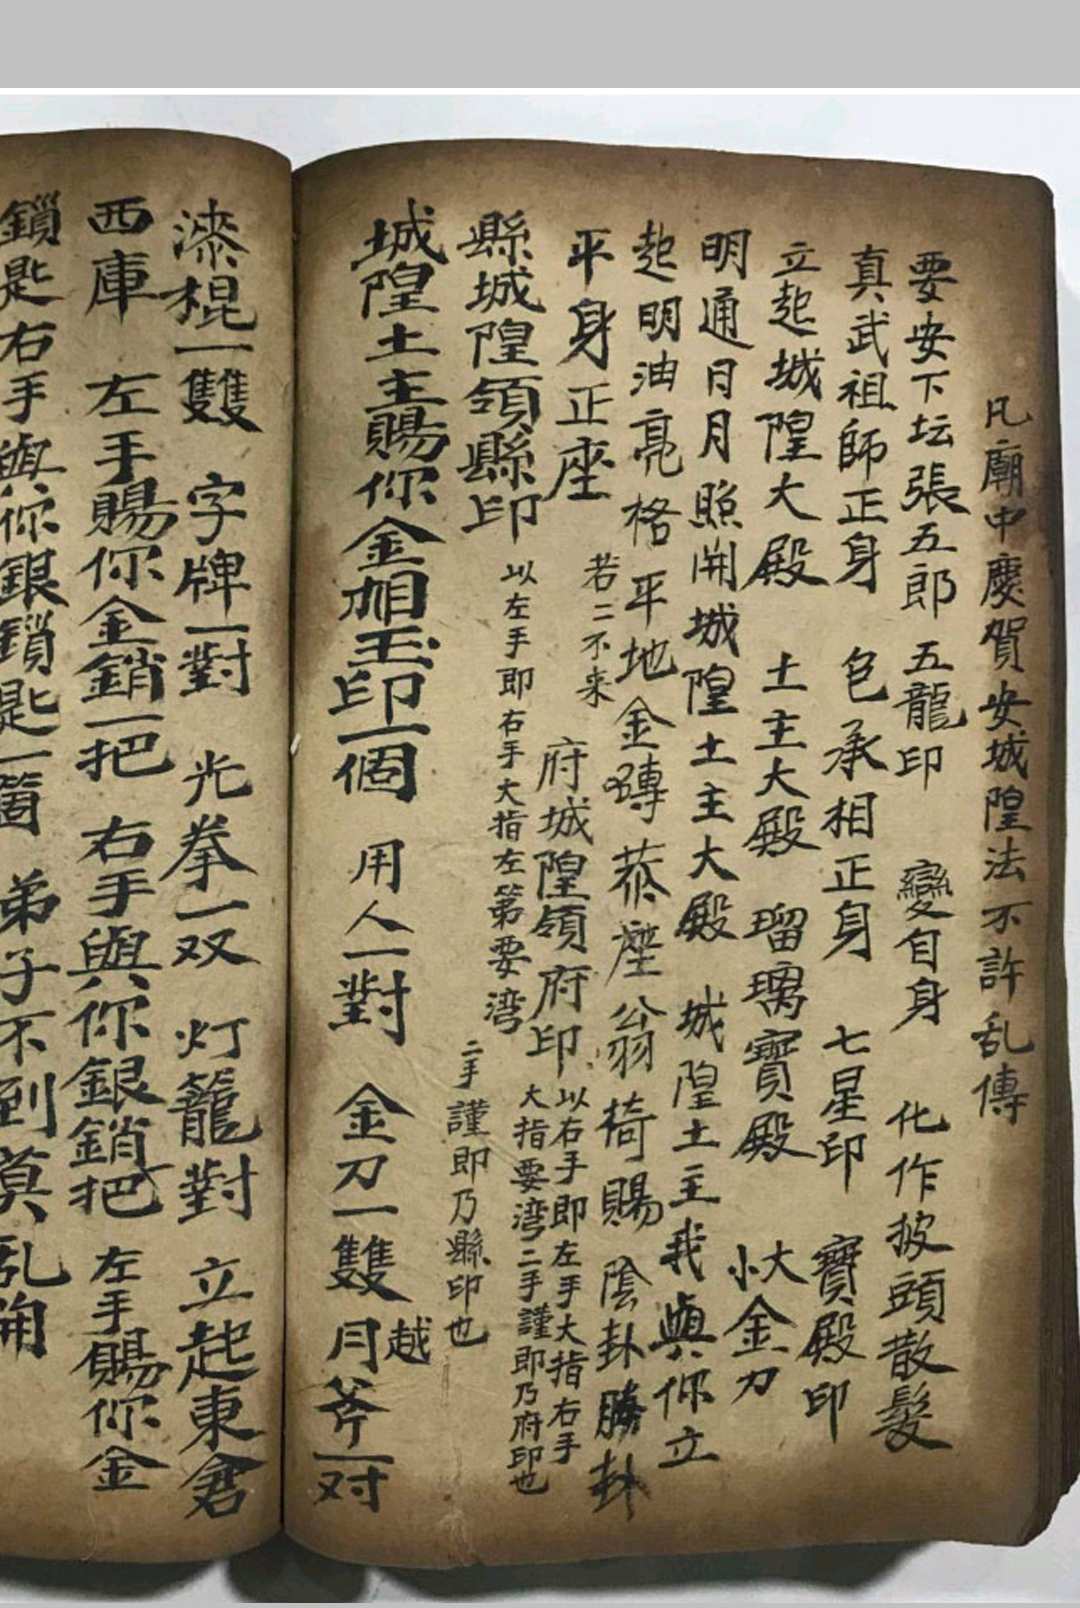 凡廟中慶賀安城隍法不許乱傳
要安下坛張五郎 五龍印 變自身 化作披頭散髮
真武祖師正身 包承相正身 七星印 寶殿印
立起城隍大殿 土主大殿 瑠璃寶殿 大小金刀
明明通日月照開城隍土主大殿 城隍土主我與你立
起明油亮格 平地金磚 恭座翁椅 賜 陰卦勝卦
平身正座 若二不来 府城隍領府印 以右手即左手大指右手
大指要湾二手謹即乃府印也
縣城隍領縣印 以左手即右手大指左第要湾
二手謹即乃縣印也
城隍土主賜你金相玉印一個 用人一對 金刀一雙 月越斧一对
漆棍一雙 字牌一對 光拳一双 灯籠對 立起東倉
西庫 左手賜你金銷一把 右手與你銀銷把 左手賜你金
鎖匙右手與你銀鎖匙一箇 弟子不到莫乱開